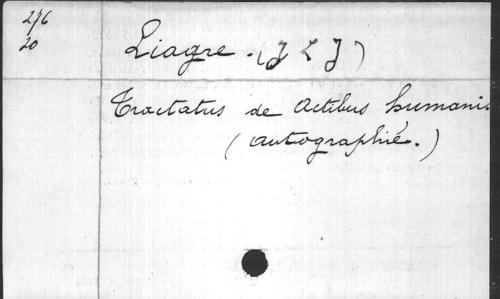 276
20
Liagre. (J L J)
Tractatus de Actibus humanis
(autographié.)